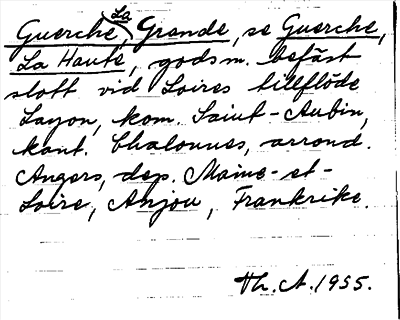 Guerche, La Grande, se Guerche,
La Haute, gods m. befäst
slott vid Loires tillflöde
Layon, kom. Saint-Aubin,
kant. Chalonnes, arrond.
Angers, dep. Maine-et-
Loire, Anjou, Frankrike.
Th. A. 1955.